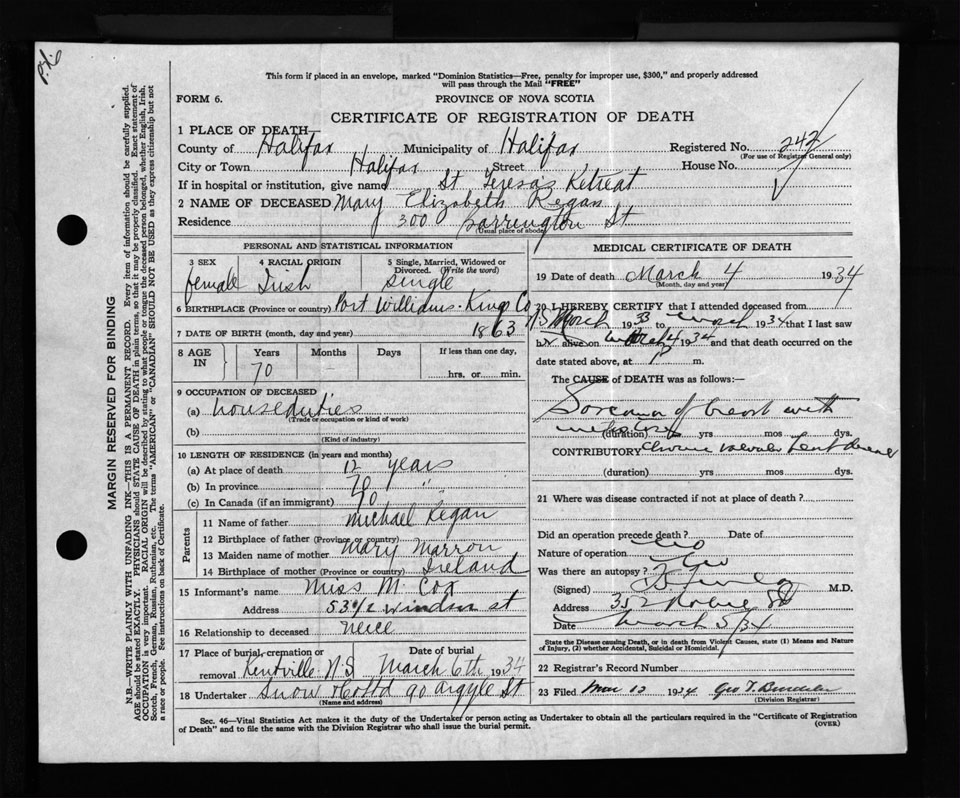 This form if placed in an envelope, marked "Dominion Statistics—Free, penalty for improper use, $300," and properly addressed
will pass through the Mail "FREE"
FORM 6.
PROVINCE OF NOVA SCOTIA
CERTIFICATE OF REGISTRATION OF DEATH
1 PLACE OF DEATH
County of Halifax Municipality of Halifax Registered No. 242
(For use of Registrar General only)
City or Town Halifax Street House No.
If in hospital or institution, give name St Teresa's Retreat
2 NAME OF DECEASED Mary Elizabeth Regan
Residence 300 Barrington St
(Usual place of abode)
PERSONAL AND STATISTICAL INFORMATION
3 SEX female
4 RACIAL ORIGIN Irish
5 Single, Married, Widowed or Divorced. (Write the word) Single
6 BIRTHPLACE (Province or country) Port Williams - King Co N.S
7 DATE OF BIRTH (month, day and year) 1863
8 AGE IN Years Months Days If less than one day,
70 hrs. or min.
9 OCCUPATION OF DECEASED
(a) houseduties
(Trade or occupation or kind of work)
(b)
(Kind of industry)
10 LENGTH OF RESIDENCE (in years and months)
(a) At place of death 12 years
(b) In province 70 "
(c) In Canada (if an immigrant)
Parents
11 Name of father Michael Regan
12 Birthplace of father (Province or country)
13 Maiden name of mother Mary Marron
14 Birthplace of mother (Province or country) Ireland
15 Informant's name Miss M. Cox
Address 53 1/2 Windsor St
16 Relationship to deceased neice
17 Place of burial, cremation or removal Kentville N.S
Date of burial March 6th 1934
18 Undertaker Snow & Co Ltd 90 Argyle St
(Name and address)
MEDICAL CERTIFICATE OF DEATH
19 Date of death March 4 1934
(Month, day and year)
20 I HEREBY CERTIFY that I attended deceased from
March 1933 to March 1934 that I last saw
h alive on March 4 1934 and that death occurred on the
date stated above, at m.
The CAUSE of DEATH was as follows:—
of breast with
(duration) yrs mos dys.
CONTRIBUTORY Chronic valvular heart disease
(duration) yrs mos dys.
21 Where was disease contracted if not at place of death?
Did an operation precede death? No Date of
Nature of operation
Was there an autopsy? No
(Signed) M.D.
Address 352 Robie St
Date March 5/34
State the Disease causing Death, or in death from Violent Causes, state (1) Means and Nature
of Injury, (2) whether Accidental, Suicidal or Homicidal.
22 Registrar's Record Number
23 Filed Mar 12 1934 Geo T.
(Division Registrar)
Sec. 46—Vital Statistics Act makes it the duty of the Undertaker or person acting as Undertaker to obtain all the particulars required in the "Certificate of Registration
of Death" and to file the same with the Division Registrar who shall issue the burial permit.
(OVER)
MARGIN RESERVED FOR BINDING
N.B.—WRITE PLAINLY WITH UNFADING INK—THIS IS A PERMANENT RECORD. Every item of information should be carefully supplied.
AGE should be stated EXACTLY. PHYSICIANS should STATE CAUSE OF DEATH in plain terms, so that it may be properly classified. Exact statement of
OCCUPATION is very important. RACIAL ORIGIN will be described by stating to what people or tongue the deceased person belonged, whether English, Irish,
Scotch, French, German, Russian, Ruthenian, etc. The terms "AMERICAN" or "CANADIAN" SHOULD NOT BE USED as they express citizenship but not
a race or people. See instructions on back of Certificate.